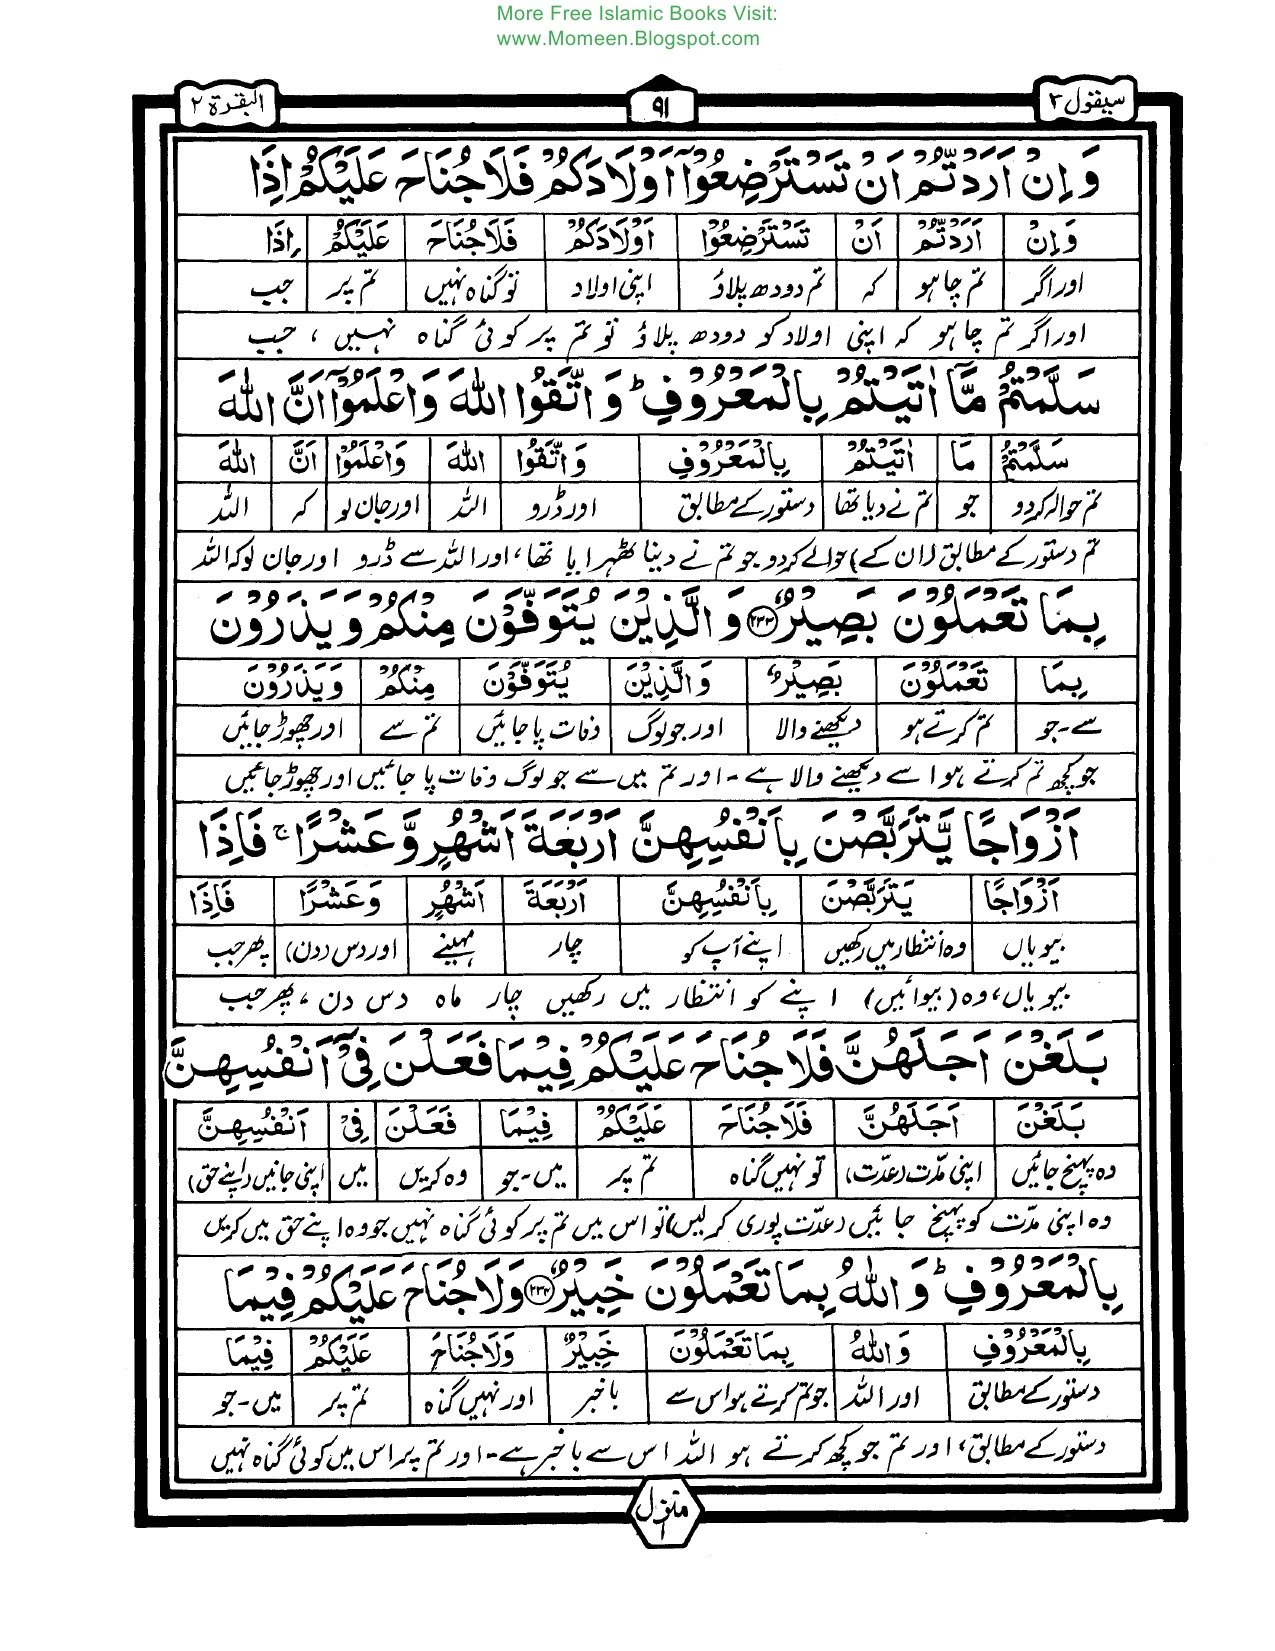 More Free Islamic Books Visit:
www.Momeen.Blogspot.com
سیقول ۲ ۹۱ البقرة ۲
وَاِنْ اَرَدْتُّمْ اَنْ تَسْتَرْضِعُوْٓا اَوْلَادَكُمْ فَلَا جُنَاحَ عَلَيْكُمْ اِذَا
وَاِنْ اَرَدْتُّمْ اَنْ تَسْتَرْضِعُوْٓا اَوْلَادَكُمْ فَلَا جُنَاحَ عَلَيْكُمْ اِذَا
اور اگر تم چاہو کہ تم دودھ پلاؤ اپنی اولاد تو گناہ نہیں تم پر جب
اور اگر تم چاہو کہ اپنی اولاد کو دودھ پلاؤ تو تم پر کوئی گناہ نہیں ، جب
سَلَّمْتُمْ مَّآ اٰتَيْتُمْ بِالْمَعْرُوْفِ ؕ وَاتَّقُوا اللّٰهَ وَاعْلَمُوْٓا اَنَّ اللّٰهَ
سَلَّمْتُمْ مَا اٰتَيْتُمْ بِالْمَعْرُوْفِ وَاتَّقُوا اللّٰهَ وَاعْلَمُوْٓا اَنَّ اللّٰهَ
تم حوالہ کردو جو تم نے دیا تھا دستور کے مطابق اور ڈرو اللہ اور جان لو کہ اللہ
تم دستور کے مطابق (ان کے) حوالے کردو جو تم نے دینا ٹھہرایا تھا ، اور اللہ سے ڈرو اور جان لو کہ اللہ
بِمَا تَعْمَلُوْنَ بَصِيْرٌ ۲۳۳ وَالَّذِيْنَ يُتَوَفَّوْنَ مِنْكُمْ وَيَذَرُوْنَ
بِمَا تَعْمَلُوْنَ بَصِيْرٌ وَالَّذِيْنَ يُتَوَفَّوْنَ مِنْكُمْ وَيَذَرُوْنَ
سے-جو تم کرتے ہو دیکھنے والا اور جو لوگ وفات پا جائیں تم سے اور چھوڑ جائیں
جو کچھ تم کرتے ہو اسے دیکھنے والا ہے - اور تم میں سے جو لوگ وفات پا جائیں اور چھوڑ جائیں
اَزْوَاجًا يَّتَرَبَّصْنَ بِاَنْفُسِهِنَّ اَرْبَعَةَ اَشْهُرٍ وَّعَشْرًا ۚ فَاِذَا
اَزْوَاجًا يَتَرَبَّصْنَ بِاَنْفُسِهِنَّ اَرْبَعَةَ اَشْهُرٍ وَعَشْرًا فَاِذَا
بیویاں وہ انتظار میں رکھیں اپنے آپ کو چار مہینے اور دس (دن) پھر جب
بیویاں، وہ (بیوائیں) اپنے کو انتظار میں رکھیں چار ماہ دس دن ، پھر جب
بَلَغْنَ اَجَلَهُنَّ فَلَا جُنَاحَ عَلَيْكُمْ فِيْمَا فَعَلْنَ فِيْٓ اَنْفُسِهِنَّ
بَلَغْنَ اَجَلَهُنَّ فَلَا جُنَاحَ عَلَيْكُمْ فِيْمَا فَعَلْنَ فِيْٓ اَنْفُسِهِنَّ
وہ پہنچ جائیں اپنی مدّت (عدّت) تو نہیں گناہ تم پر میں-جو وہ کریں میں اپنی جانیں (اپنے حق)
وہ اپنی مدّت کو پہنچ جائیں (عدّت پوری کرلیں) تو اس میں تم پر کوئی گناہ نہیں جو وہ اپنے حق میں کریں
بِالْمَعْرُوْفِ ؕ وَاللّٰهُ بِمَا تَعْمَلُوْنَ خَبِيْرٌ ۲۳۴ وَلَا جُنَاحَ عَلَيْكُمْ فِيْمَا
بِالْمَعْرُوْفِ وَاللّٰهُ بِمَا تَعْمَلُوْنَ خَبِيْرٌ وَلَا جُنَاحَ عَلَيْكُمْ فِيْمَا
دستور کے مطابق اور اللہ جو تم کرتے ہو اس سے باخبر اور نہیں گناہ تم پر میں-جو
دستور کے مطابق، اور تم جو کچھ کرتے ہو اللہ اس سے باخبر ہے - اور تم پر اس میں کوئی گناہ نہیں
منزل ۱